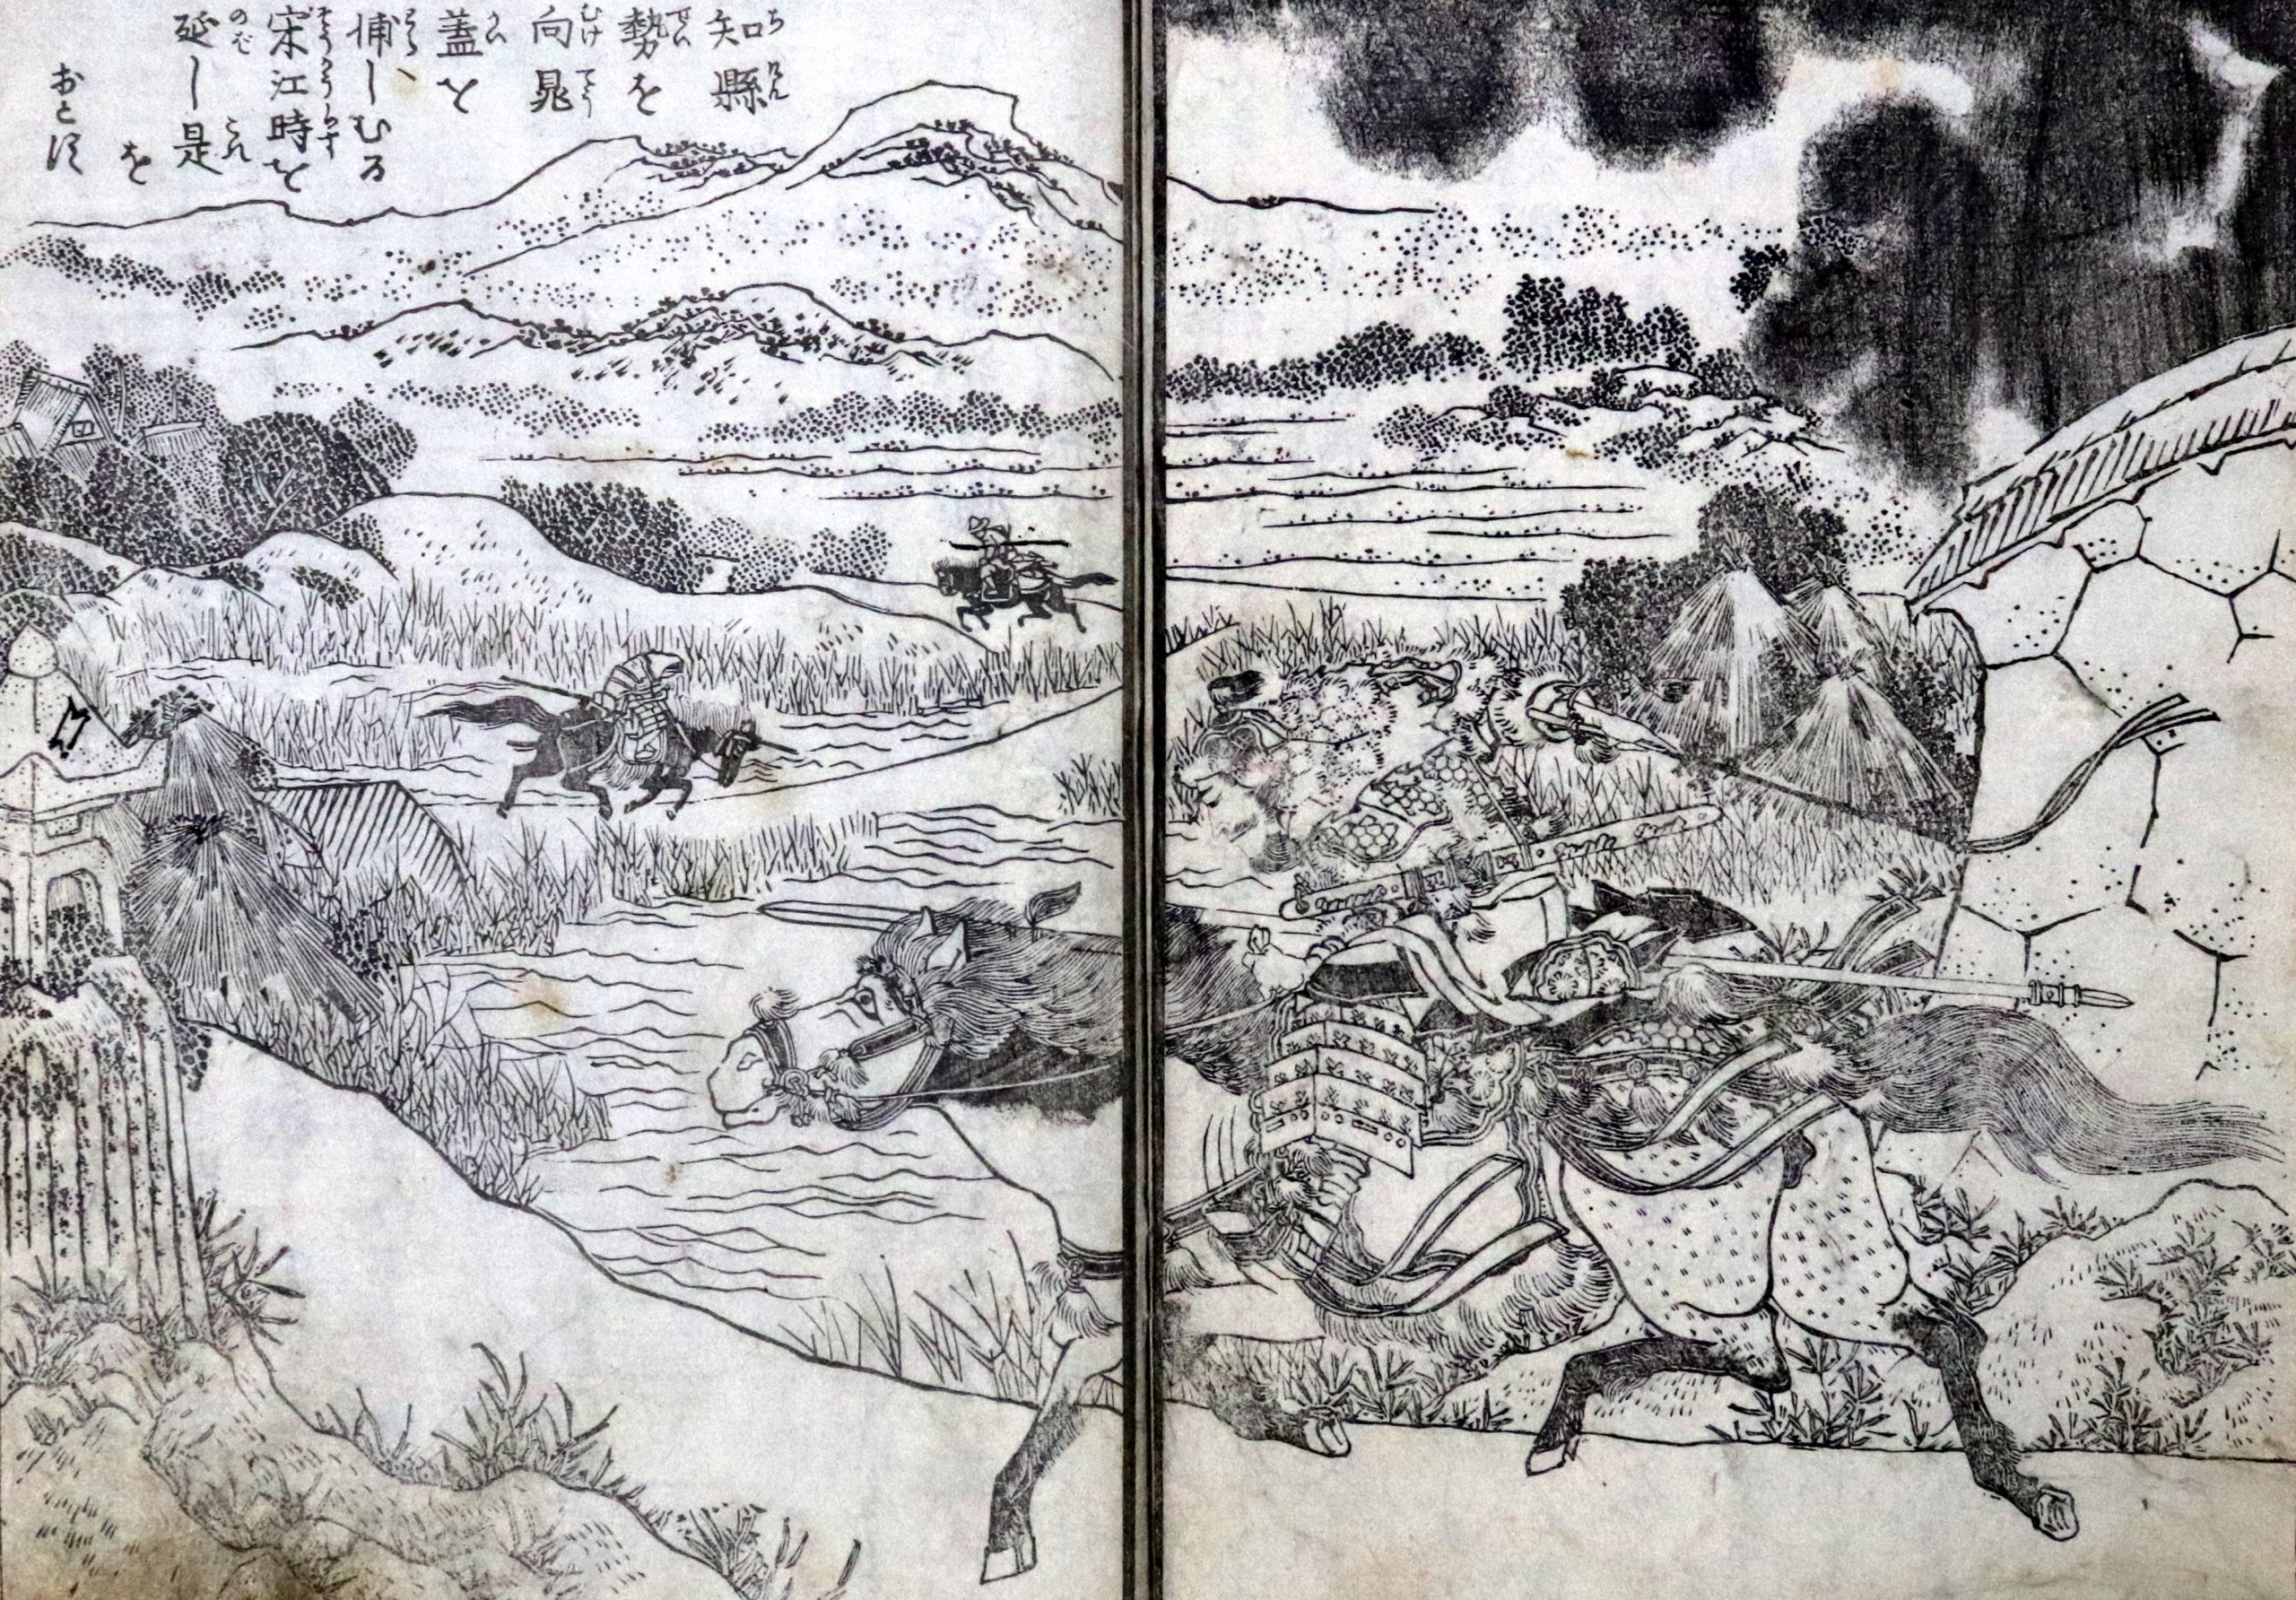 知縣
勢を
向晁
蓋と
捕しむる
宋江時を
延し是
を
おとす